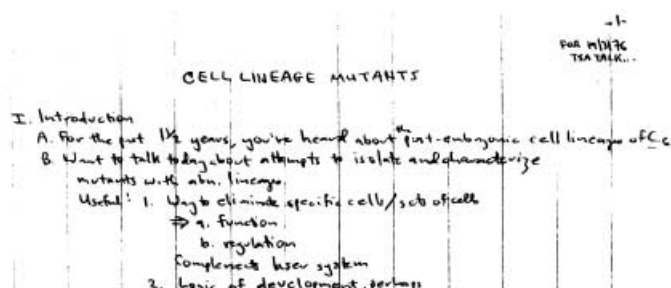 -1-
FOR
TALK...
CELL LINEAGE MUTANTS
I. Introduction
A. For the past 1½ years, you've heard about the post-embryonic cell lineage of C.
B. Want to talk today about attempts to isolate and characterize
mutants with abn. lineage.
Useful: 1. Way to eliminate specific cells/sets of cells
⇒ a. function
b. regulation
Complements laser system
2. Logic of development, perhaps